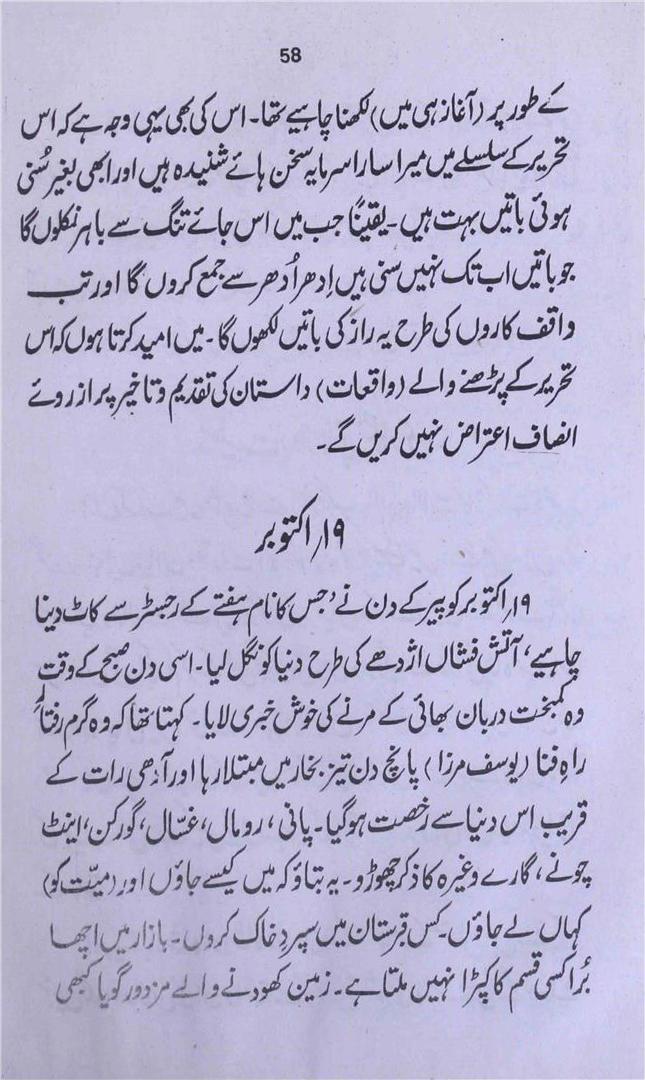 58
کے طور پر (آغاز ہی میں) لکھنا چاہیے تھا۔ اس کی بھی یہی وجہ ہے کہ اس
تحریر کے سلسلے میں میرا سارا سرمایہ سخن ہائے شنیدہ ہیں اور ابھی بغیر سُنی
ہوئی باتیں بہت ہیں۔ یقیناً جب میں اس جائے تنگ سے باہر نکلوں گا
جو باتیں اب تک نہیں سنی ہیں اِدھر اُدھر سے جمع کروں گا اور تب
واقف کاروں کی طرح یہ راز کی باتیں لکھوں گا۔ میں امید کرتا ہوں کہ اس
تحریر کے پڑھنے والے (واقعات) داستان کی تقدیم و تاخیر پر از روئے
انصاف اعتراض نہیں کریں گے۔
۱۹؍ اکتوبر
۱۹؍ اکتوبر کو پیر کے دن نے، جس کا نام ہفتے کے رجسٹر سے کاٹ دینا
چاہیے، آتش فشاں اژدھے کی طرح دنیا کو نگل لیا۔ اسی دن صبح کے وقت
وہ کمبخت دربان بھائی کے مرنے کی خوش خبری لایا۔ کہتا تھا کہ وہ گرم رفتارِ
راہِ فنا (یوسف مرزا) پانچ دن تیز بخار میں مبتلا رہا اور آدھی رات کے
قریب اس دنیا سے رخصت ہوگیا۔ پانی، رومال، غسّال، گورکن، اینٹ
چونے، گارے وغیرہ کا ذکر چھوڑو۔ یہ بتاؤ کہ میں کیسے جاؤں اور (میّت کو)
کہاں لے جاؤں۔ کس قبرستان میں سپردِ خاک کروں۔ بازار میں اچھا
بُرا کسی قسم کا کپڑا نہیں ملتا ہے۔ زمین کھودنے والے مزدور گویا کبھی